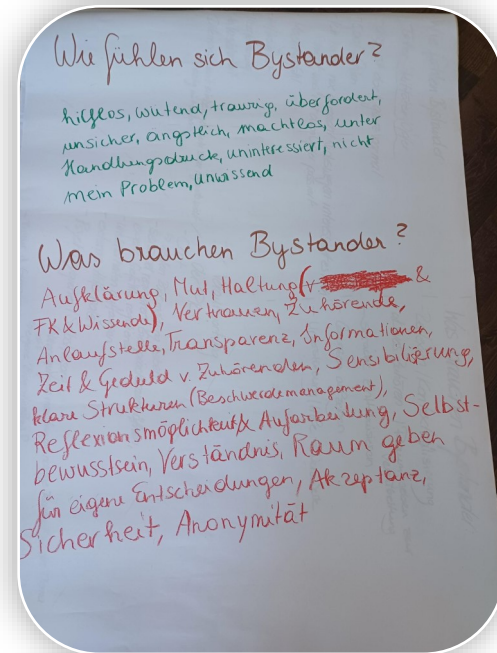 Wie fühlen sich Bystander?
hilflos, wütend, traurig, überfordert,
unsicher, ängstlich, machtlos, unter
Handlungsdruck, uninteressiert, nicht
mein Problem, unwissend
Was brauchen Bystander?
Aufklärung, Mut, Haltung (v &
FK & Wissende), Vertrauen, Zuhörende,
Anlaufstelle, Transparenz, Informationen,
Zeit & Geduld v. Zuhörenden, Sensibilisierung,
klare Strukturen (Beschwerdemanagement),
Reflexionsmöglichkeit & Aufarbeitung, Selbst-
bewusstsein, Verständnis, Raum geben
für eigene Entscheidungen, Akzeptanz,
Sicherheit, Anonymität